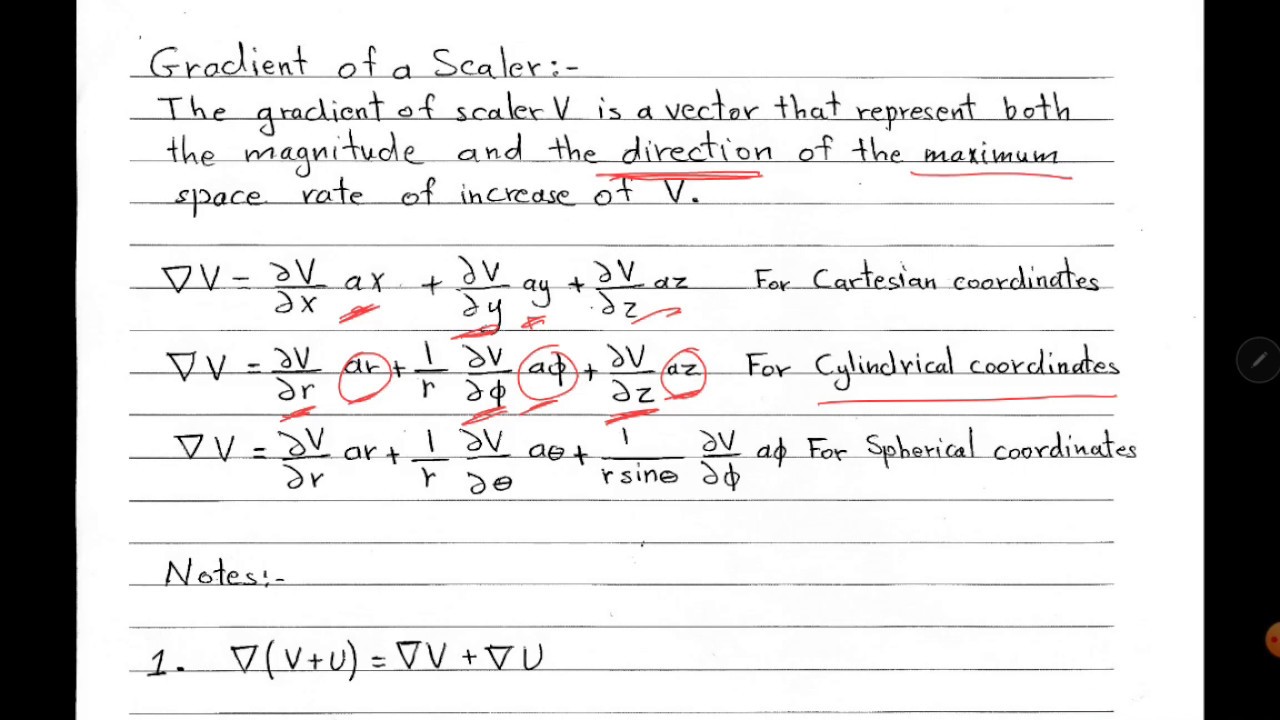 Gradient of a Scaler:-
The gradient of scaler V is a vector that represent both
the magnitude and the direction of the maximum
space rate of increase of V.
∇V = ∂V/∂x ax + ∂V/∂y ay + ∂V/∂z az For Cartesian coordinates
∇V = ∂V/∂r ar + 1/r ∂V/∂ϕ aϕ + ∂V/∂z az For Cylindrical coordinates
∇V = ∂V/∂r ar + 1/r ∂V/∂θ aθ + 1/r sinθ ∂V/∂ϕ aϕ For Spherical coordinates
Notes:-
1. ∇(V+U) = ∇V + ∇U